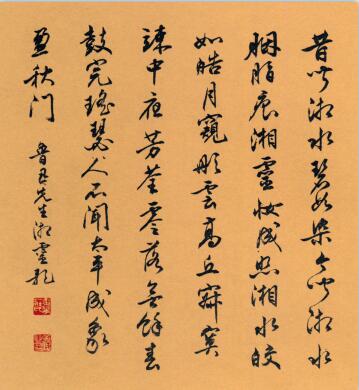 昔闻湘水碧如染今闻湘水
胭脂痕湘靈妝成照湘水皎
如皓月窺彤云高丘寂寞
竦中夜芳荃零落無餘春
鼓完瑤瑟人不闻太平成象
盈秋门
魯迅先生湘靈歌